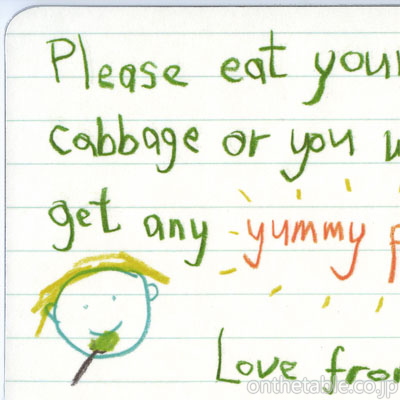 Please eat your
cabbage or you
get any yummy
Love from
onthetable.co.jp